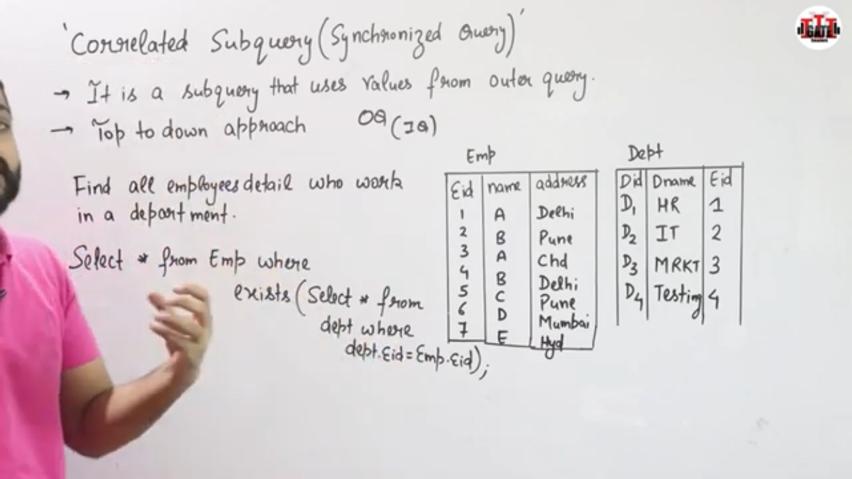 'Correlated Subquery (Synchronized Query)'
→ It is a subquery that uses values from outer query.
→ Top to down approach OQ (IQ)
Find all employees detail who work
in a department.
Select * from Emp where
exists (Select * from
dept where
dept.Eid = Emp.Eid);
Emp
Eid name address
1 A Delhi
2 B Pune
3 A Chd
4 B Delhi
5 C Pune
6 D Mumbai
7 E Hyd
Dept
Did Dname Eid
D1 HR 1
D2 IT 2
D3 MRKT 3
D4 Testing 4
GATE